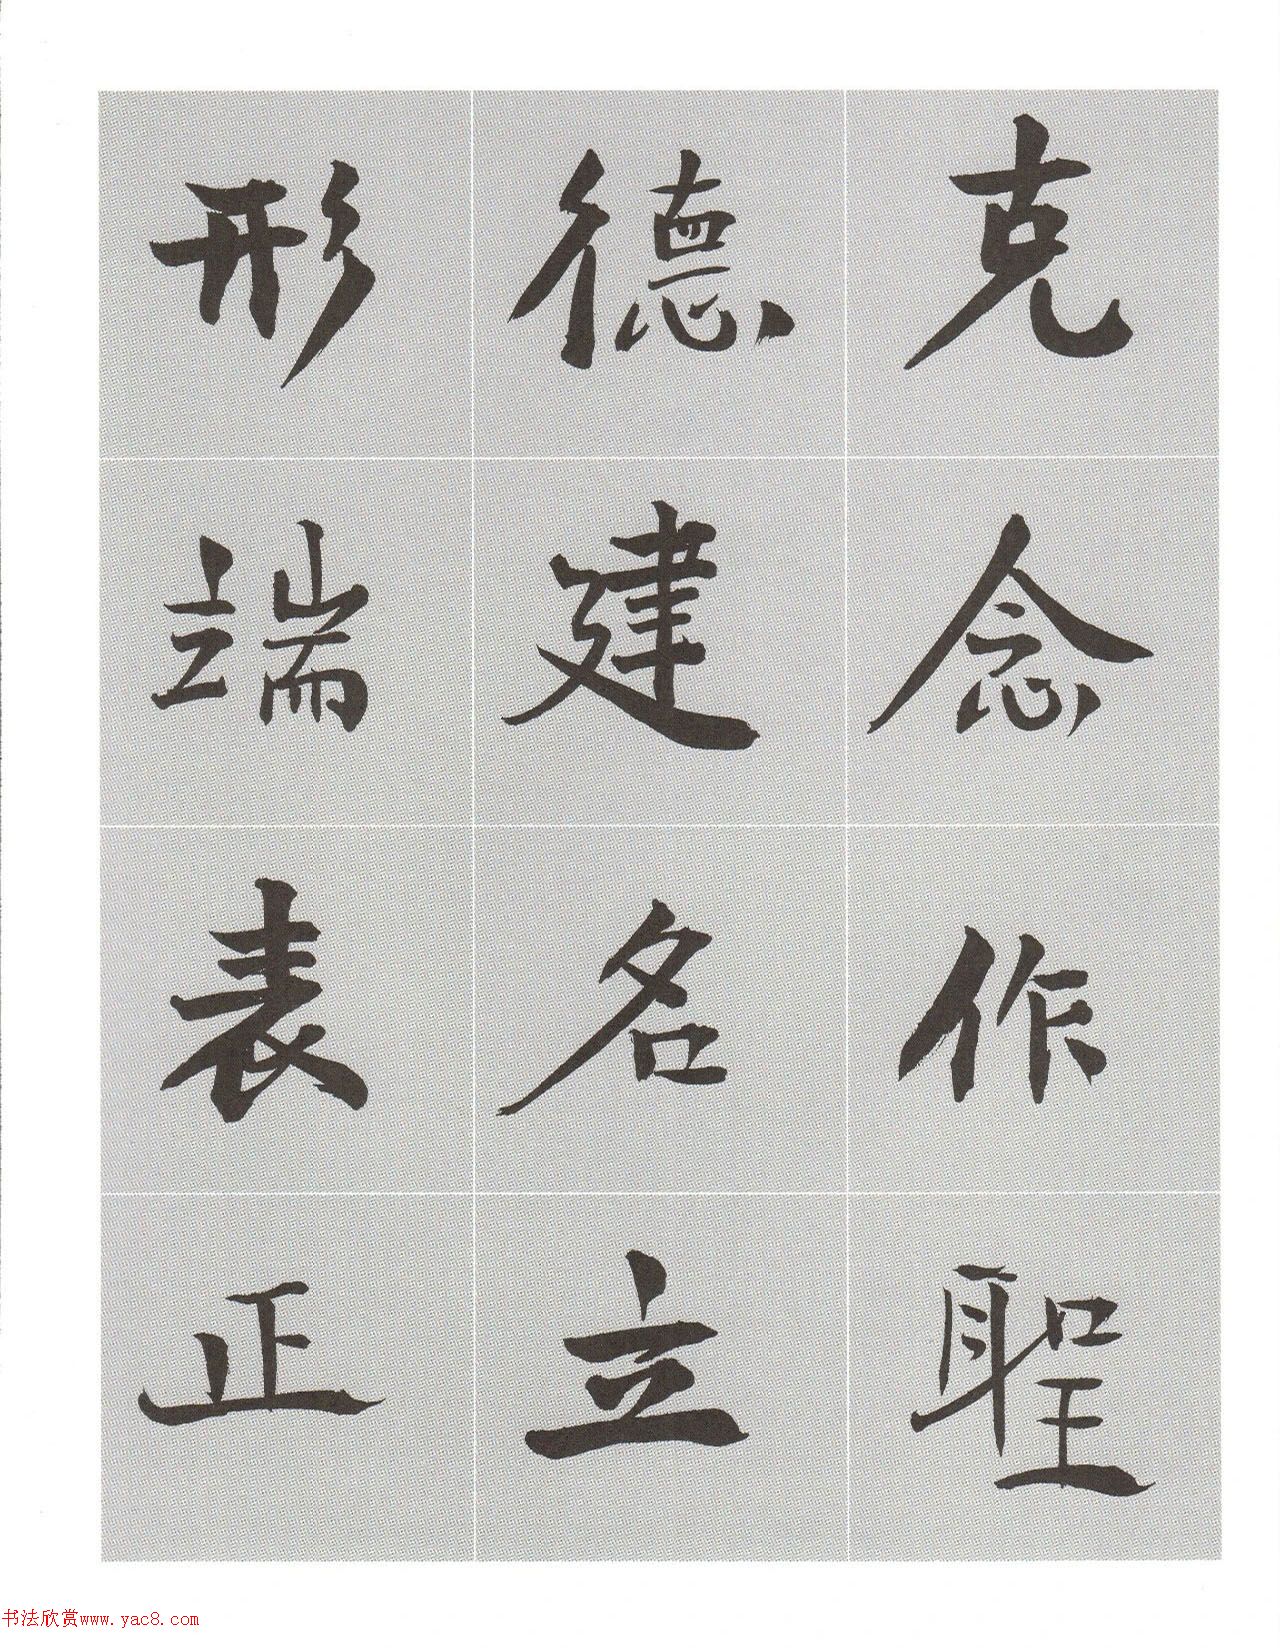 克念作聖
德建名立
形端表正
书法欣赏www.yac8.com